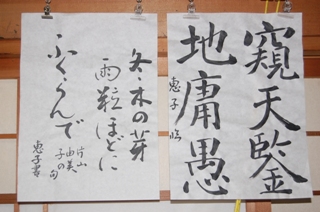 窺天鑒
地庸愚
惠子臨
冬木の芽
雨粒ほどに
ふくらんで
片山
由美
子の句
惠子書